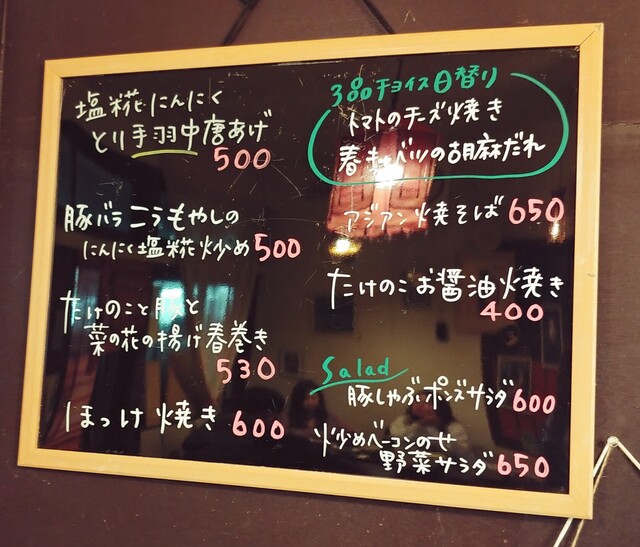 塩糀にんにく
とり手羽中唐あげ
500
豚バラこうもやしの
にんにく塩糀炒め 500
たけのこと豚と
菜の花の揚げ春巻き
530
ほっけ焼き 600
3品チョイス日替り
トマトのチーズ焼き
春キャベツの胡麻だれ
アジアン焼そば 650
たけのこお醤油焼き
400
Salad
豚しゃぶポンズサラダ 600
炒めベーコンのせ
野菜サラダ 650